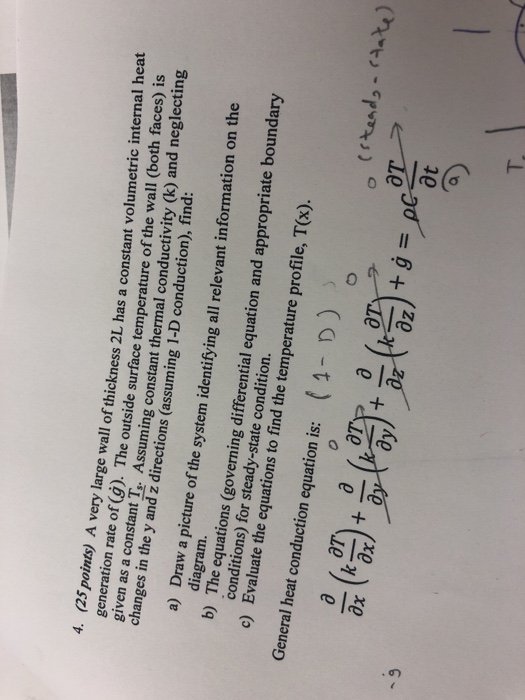 4. (25 points) A very large wall of thickness 2L has a constant volumetric internal heat
generation rate of (ġ). The outside surface temperature of the wall (both faces) is
given as a constant Ts. Assuming constant thermal conductivity (k) and neglecting
changes in the y and z directions (assuming 1-D conduction), find:
a) Draw a picture of the system identifying all relevant information on the
diagram.
b) The equations (governing differential equation and appropriate boundary
conditions) for steady-state condition.
c) Evaluate the equations to find the temperature profile, T(x).
General heat conduction equation is: (1-D)
0 0 0 (steady-state)
∂/∂x (k ∂T/∂x) + ∂/∂y (k ∂T/∂y) + ∂/∂z (k ∂T/∂z) + ġ = ρC ∂T/∂t
-ġ
a)
T